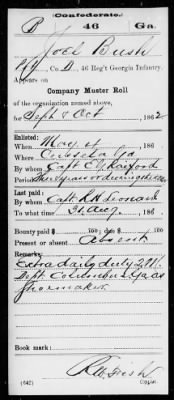 Confederate.
B 46 Ga.
Joel Bush
Pvt, Co. D, 46 Reg't Georgia Infantry.
Appears on
Company Muster Roll
of the organization named above,
for Sept & Oct, 1862
Enlisted:
When May 4, 186
Where Cusseta Ga
By whom Capt E. Raiford
Period Three years or during the war
Last paid:
By whom Capt R. H. Leonard
To what time 31 Aug, 186
Bounty paid $ 100; due $ 100
Present or absent Absent
Remarks:
Extra daily duty
Dept. Columbus Ga as
Shoemaker.
Book mark:
(642) Copyist.